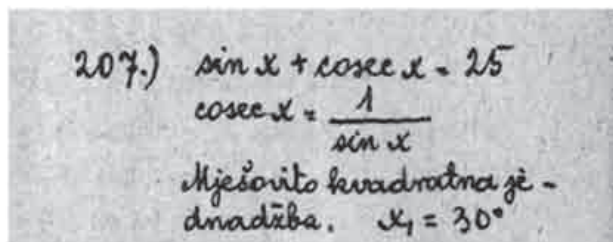 207.) sin x + cosec x = 25
cosec x = 1
sin x
Mješovito kvadratna je-
dnadžba. x₁ = 30°